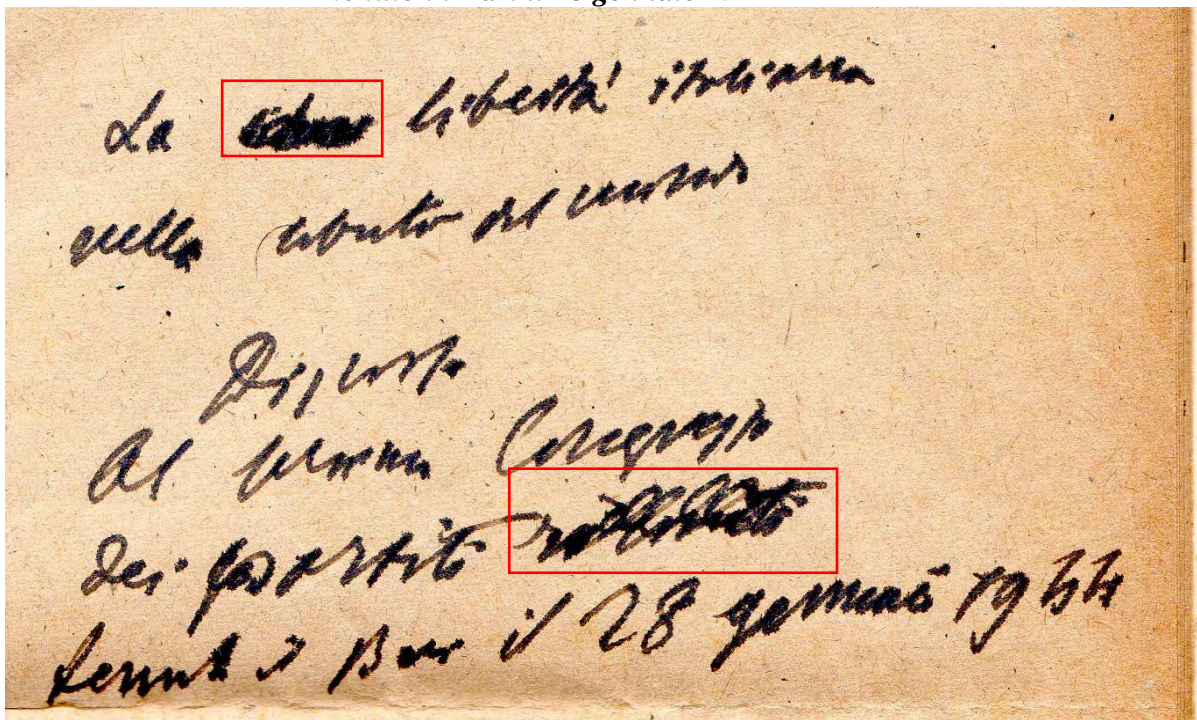 La libertà italiana
nella libertà del mondo
Discorso
Al primo Congresso
Dei partiti
tenuto a Bari il 28 gennaio 1944